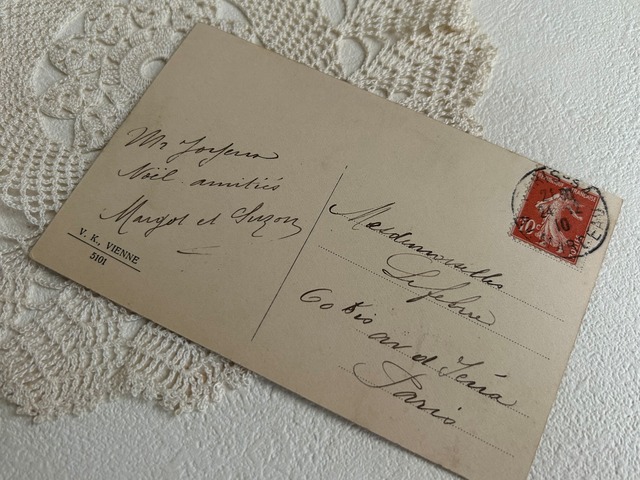 Un Joyeux
Noël. amitiés
Margot et Suzon
V. K., VIENNE
5101
Mesdemoiselles
Lefebvre
60 bis av d'Iéna
Paris
10c